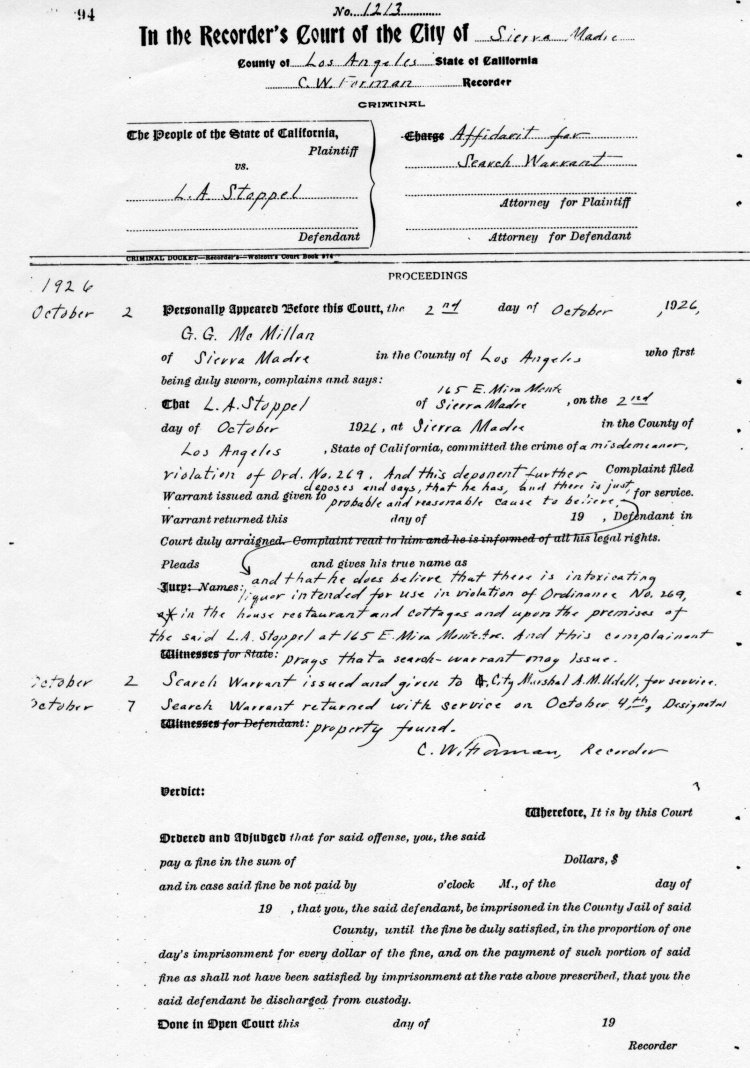 94
No. 1213
In the Recorder's Court of the City of Sierra Madre
County of Los Angeles State of California
C. W. Forman Recorder
CRIMINAL
The People of the State of California,
Plaintiff
vs.
L. A. Stoppel
Defendant
Charge Affidavit for
Search Warrant
Attorney for Plaintiff
Attorney for Defendant
CRIMINAL DOCKET—Recorder's—Wolcott's Court Book 974
PROCEEDINGS
1926
October 2 Personally Appeared Before this Court, the 2nd day of October, 1926,
G. G. McMillan
of Sierra Madre in the County of Los Angeles who first
being duly sworn, complains and says:
165 E. Mira Monte
That L. A. Stoppel of Sierra Madre, on the 2nd
day of October 1926, at Sierra Madre in the County of
Los Angeles, State of California, committed the crime of a misdemeanor,
violation of Ord. No. 269. And this deponent further Complaint filed
deposes and says, that he has, and there is just,
Warrant issued and given to probable and reasonable cause to believe, for service.
Warrant returned this day of 19 , Defendant in
Court duly arraigned. Complaint read to him and he is informed of all his legal rights.
Pleads and gives his true name as
Jury: Names: and that he does believe that there is intoxicating
liquor intended for use in violation of Ordinance No. 269,
in the house restaurant and cottages and upon the premises of
the said L. A. Stoppel at 165 E. Mira Monte Ave. And this complainant
Witnesses for State: prays that a search-warrant may issue.
October 2 Search Warrant issued and given to City Marshal A. M. Udell, for service.
October 7 Search Warrant returned with service on October 4th, Designated
Witnesses for Defendant: property found.
C. W. Forman, Recorder
Verdict:
Wherefore, It is by this Court
Ordered and Adjudged that for said offense, you, the said
pay a fine in the sum of Dollars, $
and in case said fine be not paid by o'clock M., of the day of
19 , that you, the said defendant, be imprisoned in the County Jail of said
County, until the fine be duly satisfied, in the proportion of one
day's imprisonment for every dollar of the fine, and on the payment of such portion of said
fine as shall not have been satisfied by imprisonment at the rate above prescribed, that you the
said defendant be discharged from custody.
Done in Open Court this day of 19
Recorder